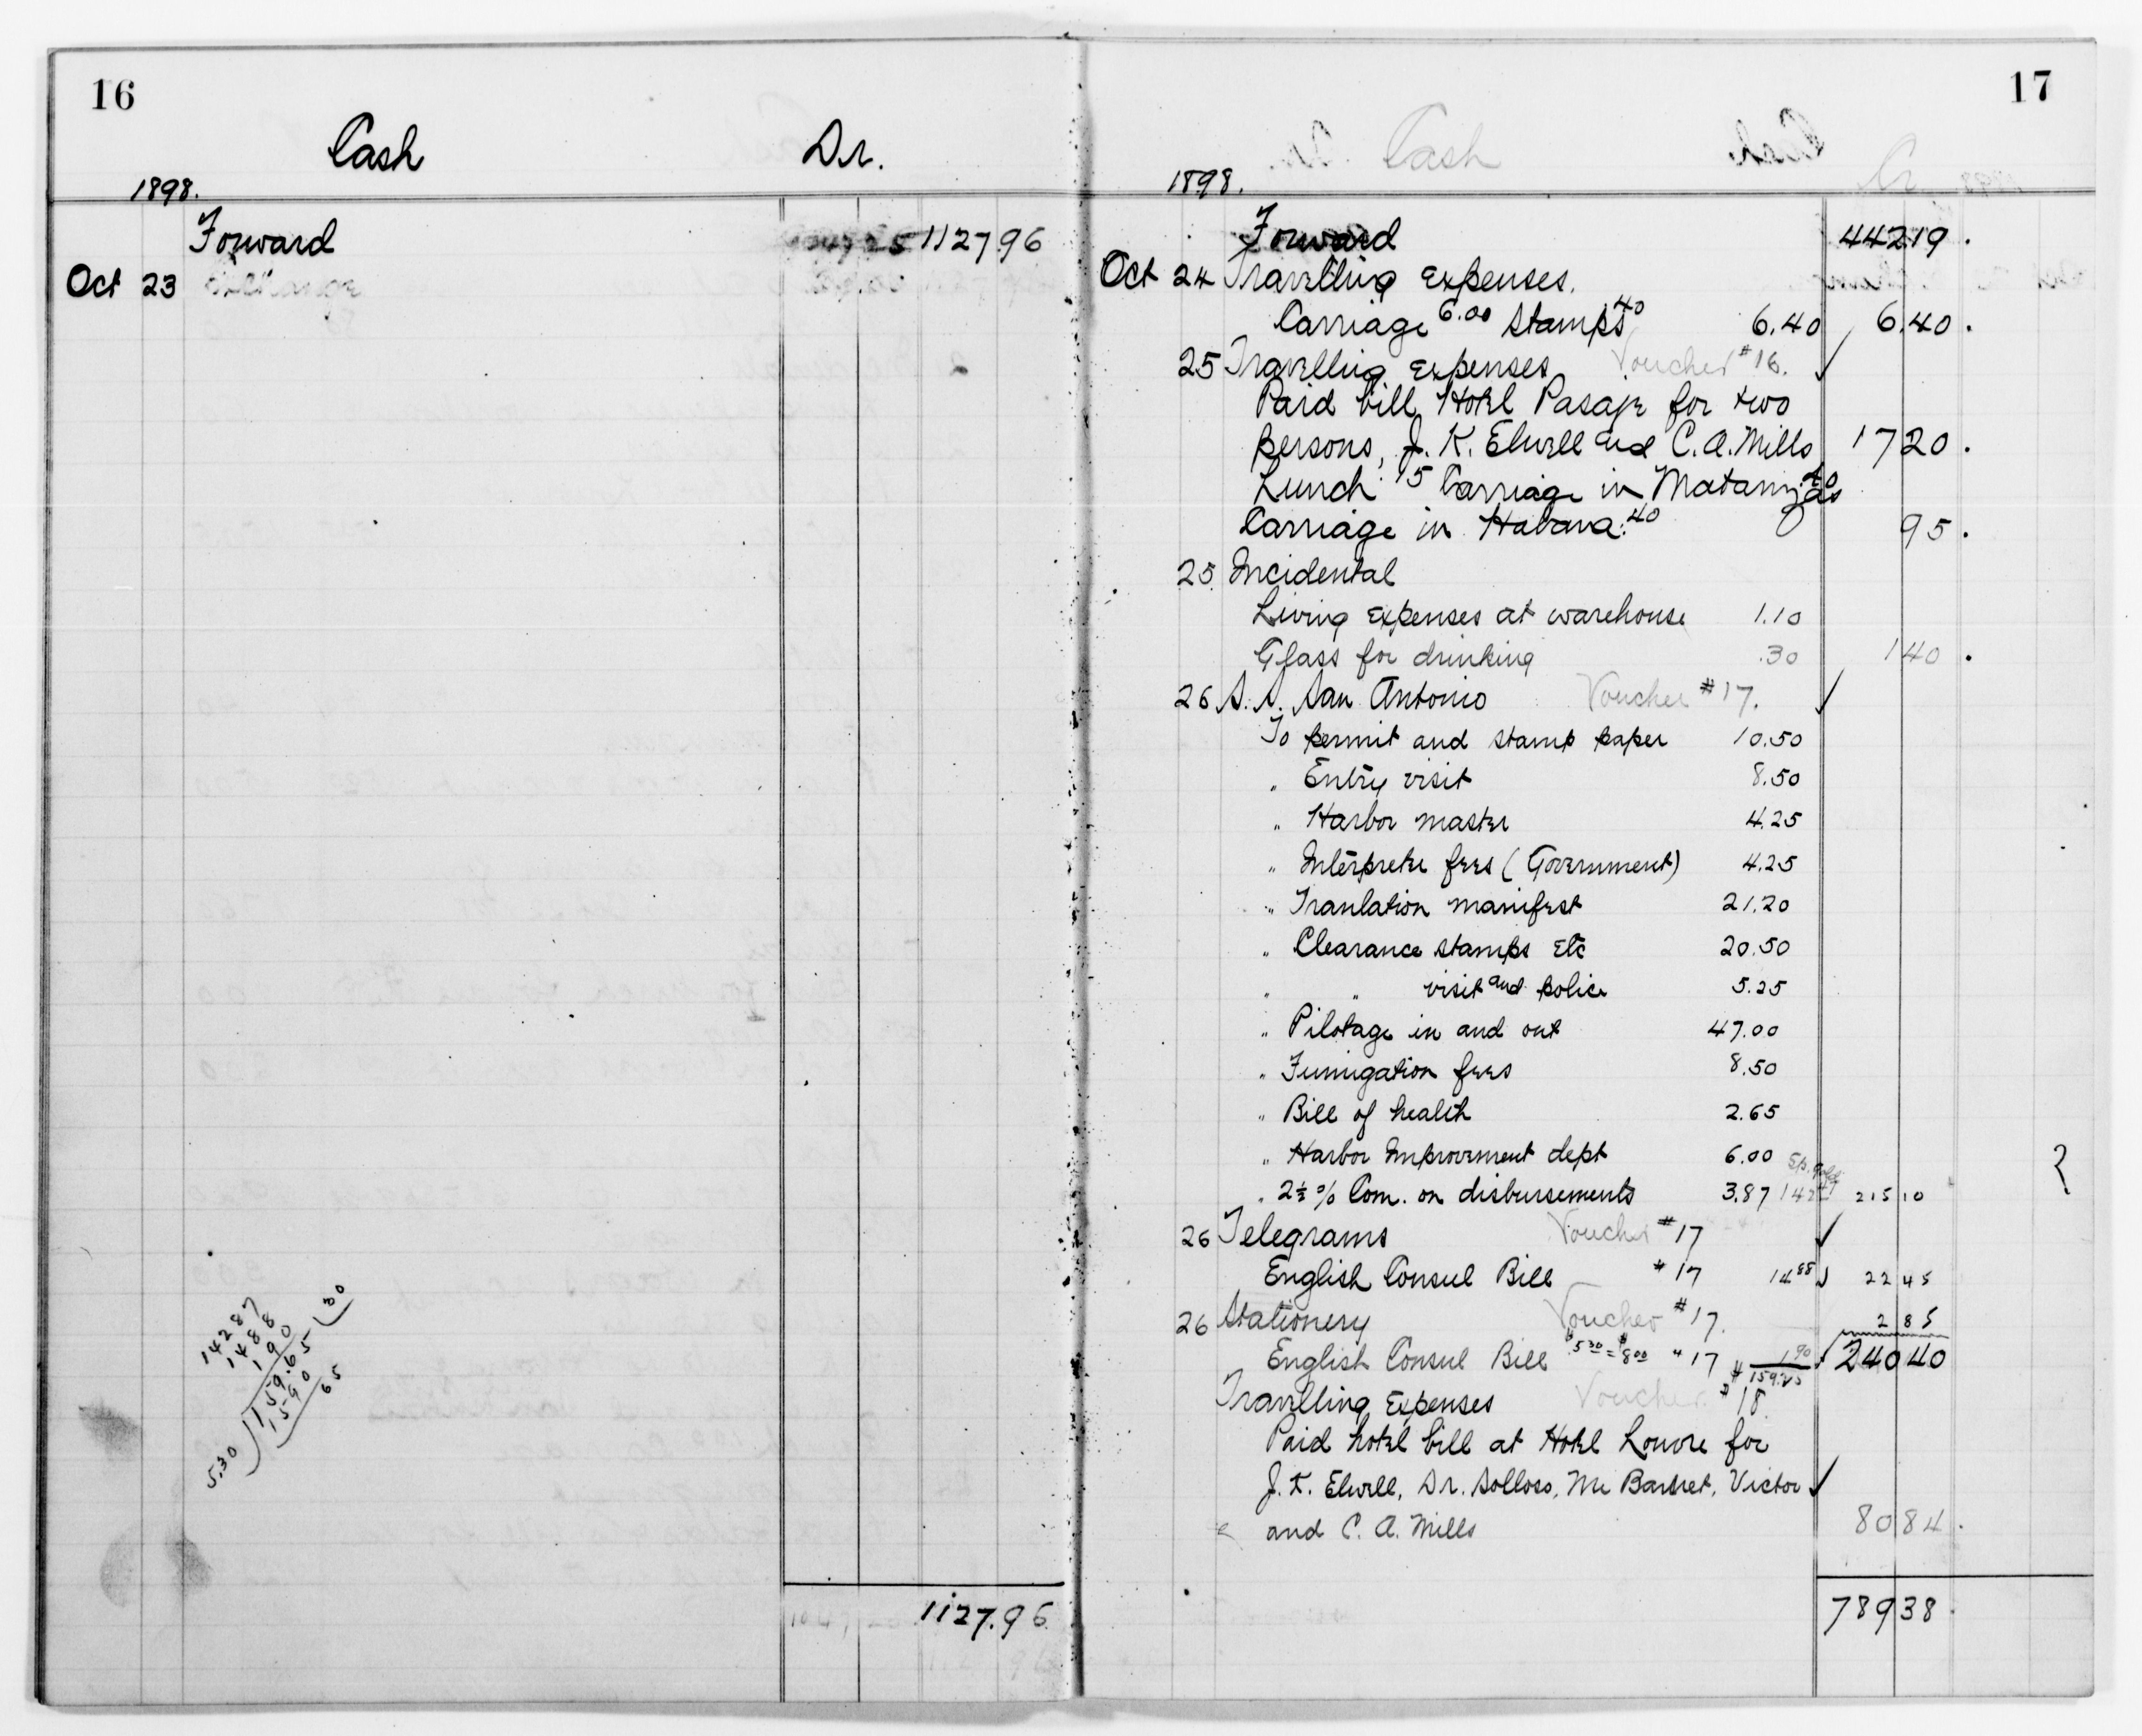 16
Cash Dr.
1898.
Forward 1127 96
Oct 23 Exchange
14287
1488
190
5.30 ) 159.65 ( 30
1590
65
1127.96
17
Cash Cr
1898.
Forward 442 19 .
Oct 24 Travelling Expenses.
Carriage 6.00 Stamps 40 6.40 6.40 .
25 Travelling Expenses Voucher #16. ✓
Paid bill Hotel Pasaje for two
persons, J. K. Elwell and C. A. Mills 17 20 .
Lunch .15 Carriage in Matanzas .40
Carriage in Habana .40 95 .
25 Incidental
Living Expenses at warehouse 1.10
Glass for drinking .30 1 40 .
26 S. S. San Antonio Voucher #17. ✓
To permit and stamp paper 10.50
" Entry visit 8.50
" Harbor master 4.25
" Interpreter fees (Government) 4.25
" Tranlation manifest 21.20
" Clearance stamps Etc 20.50
" " visit and police 5.25
" Pilotage in and out 47.00
" Fumigation fees 8.50
" Bill of health 2.65
" Harbor Improvement dept 6.00 Sp. gold
" 2½ % Com. on disbursements 3.87 215 10 ?
26 Telegrams Voucher #17 ✓
English Consul Bill #17 14 88 ✓ 22 45
26 Stationery Voucher #17. 2 85
English Consul Bill $5 30 = $8 00 " 17 1 90 ✓ 240 40
$159.65
Travelling Expenses Voucher #18
Paid hotel bill at Hotel Louvre for
J. K. Elwell, Dr. Solloso, Mr Barnet, Victor ✓
and C. A. Mills 80 84 .
789 38 .